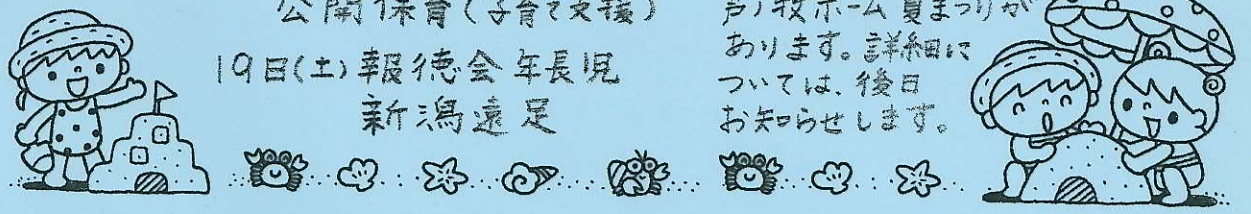 公開保育(子育て支援)
19日(土)報徳会年長児
新潟遠足
芦ノ牧ホーム夏まつりが
あります。詳細に
ついては、後日
お知らせします。